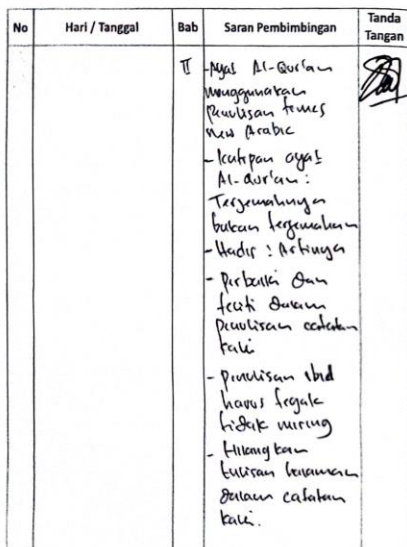 No Hari / Tanggal Bab Saran Pembimbingan Tanda Tangan
II
- Ayat Al-Qur'an
menggunakan
penulisan times
new Arabic
- kutipan ayat
Al-Qur'an :
Terjemahnya
bukan terjemahan
- Hadis : Artinya
- Perbaiki dan
teliti dalam
penulisan catatan
kaki
- penulisan ibid
harus tegak
tidak miring
- Hilangkan
tulisan halaman
dalam catatan
kaki.